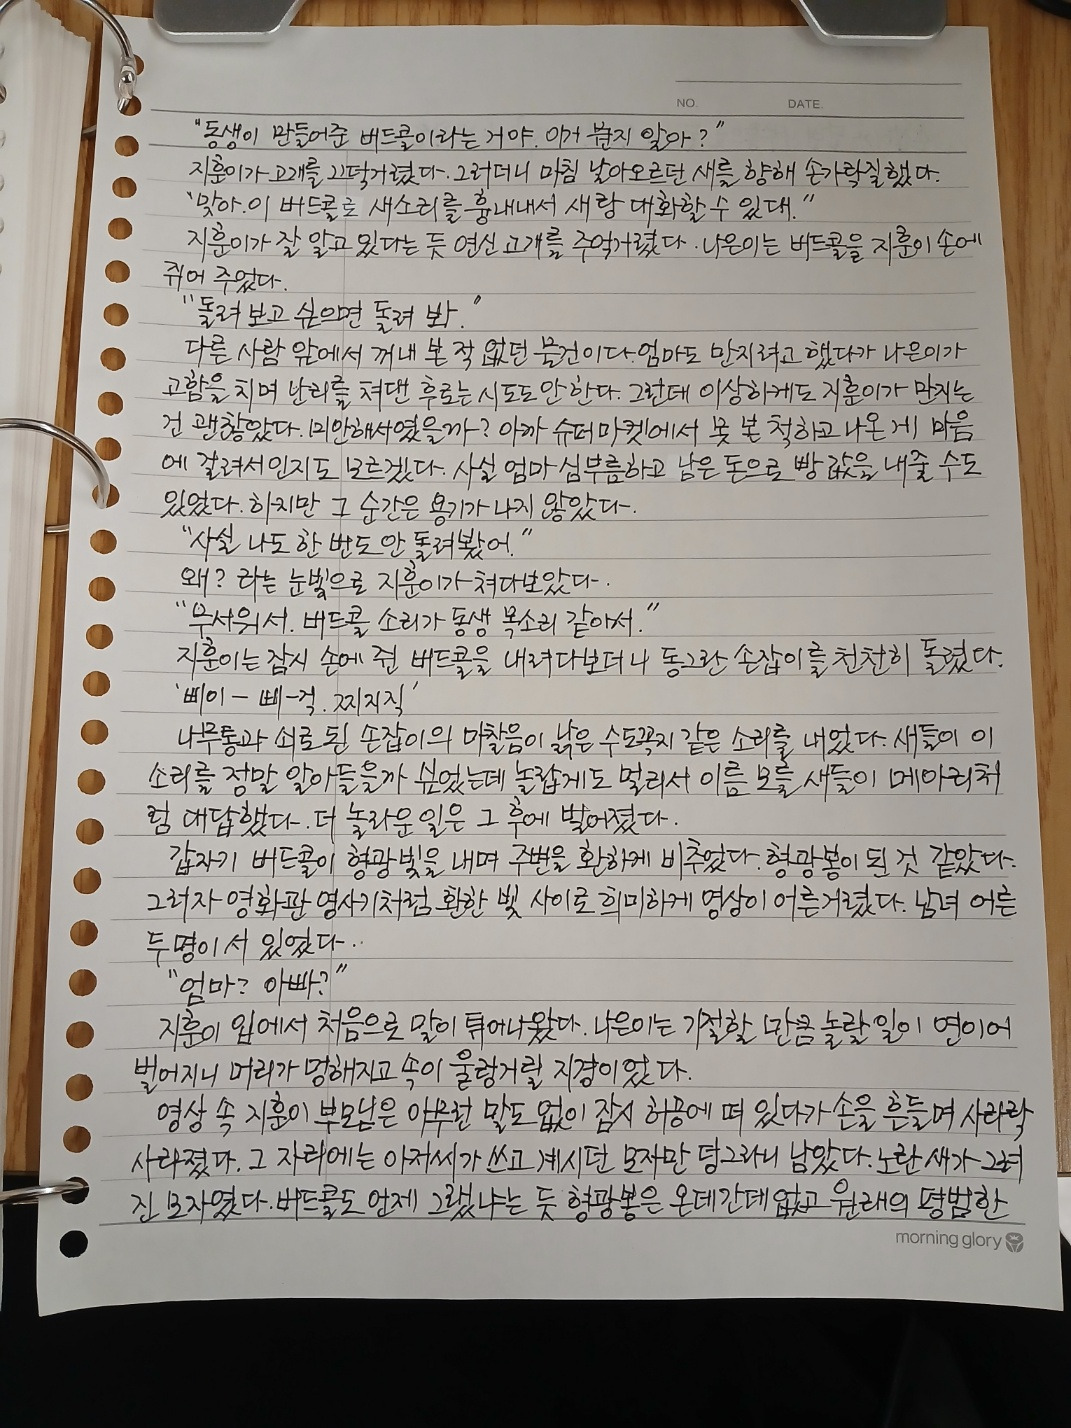 NO. DATE.
"동생이 만들어준 버드콜이라는 거야. 이거 뭔지 알아?"
지훈이가 고개를 끄덕거렸다. 그러더니 마침 날아오르던 새를 향해 손가락질했다.
"맞아. 이 버드콜로 새소리를 흉내내서 새랑 대화할 수 있대."
지훈이가 잘 알고 있다는 듯 연신 고개를 주억거렸다. 나은이는 버드콜을 지훈이 손에
쥐어 주었다.
"돌려 보고 싶으면 돌려 봐."
다른 사람 앞에서 꺼내 본 적 없던 물건이다. 엄마도 만지려고 했다가 나은이가
고함을 치며 난리를 쳐댄 후로는 시도도 안 한다. 그런데 이상하게도 지훈이가 만지는
건 괜찮았다. 미안해서였을까? 아까 슈퍼마켓에서 못 본 척하고 나온 게 마음
에 걸려서인지도 모르겠다. 사실 엄마 심부름하고 남은 돈으로 빵 값을 내줄 수도
있었다. 하지만 그 순간은 용기가 나지 않았다.
"사실 나도 한 번도 안 돌려봤어."
왜? 라는 눈빛으로 지훈이가 쳐다보았다.
"무서워서. 버드콜 소리가 동생 목소리 같아서."
지훈이는 잠시 손에 쥔 버드콜을 내려다보더니 동그란 손잡이를 천천히 돌렸다.
'삐이- 삐-걱. 찌지직'
나무통과 쇠로 된 손잡이의 마찰음이 낡은 수도꼭지 같은 소리를 내었다. 새들이 이
소리를 정말 알아들을까 싶었는데 놀랍게도 멀리서 이름 모를 새들이 메아리처
럼 대답했다. 더 놀라운 일은 그 후에 벌어졌다.
갑자기 버드콜이 형광빛을 내며 주변을 환하게 비추었다. 형광봉이 된 것 같았다.
그러자 영화관 영사기처럼 환한 빛 사이로 희미하게 영상이 어른거렸다. 남녀 어른
두 명이 서 있었다..
"엄마? 아빠?"
지훈이 입에서 처음으로 말이 튀어나왔다. 나은이는 기절할 만큼 놀랄 일이 연이어
벌어지니 머리가 멍해지고 속이 울렁거릴 지경이었다.
영상 속 지훈이 부모님은 아무런 말도 없이 잠시 허공에 떠 있다가 손을 흔들며 사라락
사라졌다. 그 자리에는 아저씨가 쓰고 계시던 모자만 덩그라니 남았다. 노란 새가 그려
진 모자였다. 버드콜도 언제 그랬냐는 듯 형광봉은 온데간데 없고 원래의 평범한
morning glory